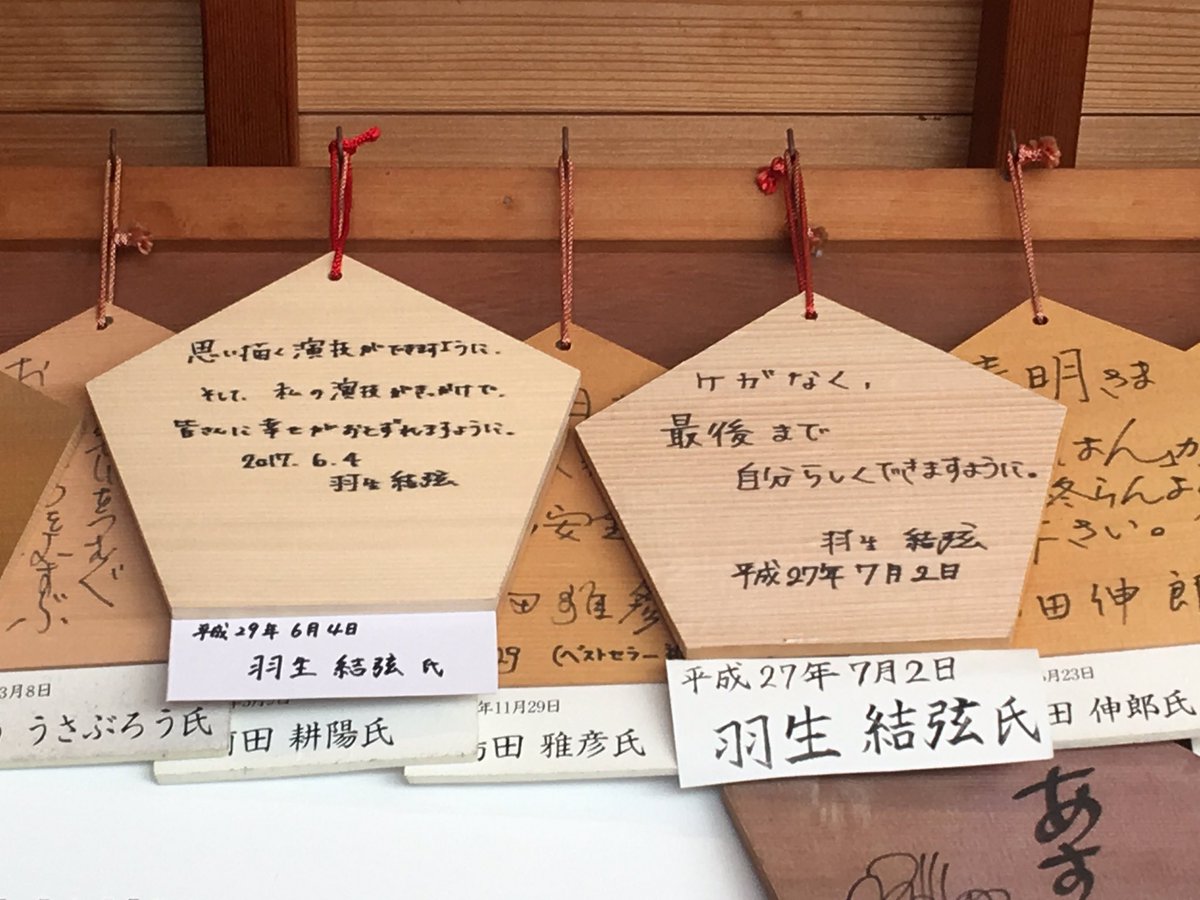 思い描く演技ができますように。
そして、私の演技がきっかけで、
皆さんに幸せがおとずれますように。
2017.6.4
羽生結弦
平成29年6月4日
羽生結弦氏
ケガなく、
最後まで
自分らしくできますように。
羽生結弦
平成27年7月2日
平成27年7月2日
羽生結弦氏
お
をつむぐ
3月8日
うさぶろう氏
田 耕陽氏
安
田雅彦
29 (ベストセラー
年11月29日
田 雅彦氏
明さま
さい。
田伸郎
月23日
田 伸郎氏
あす